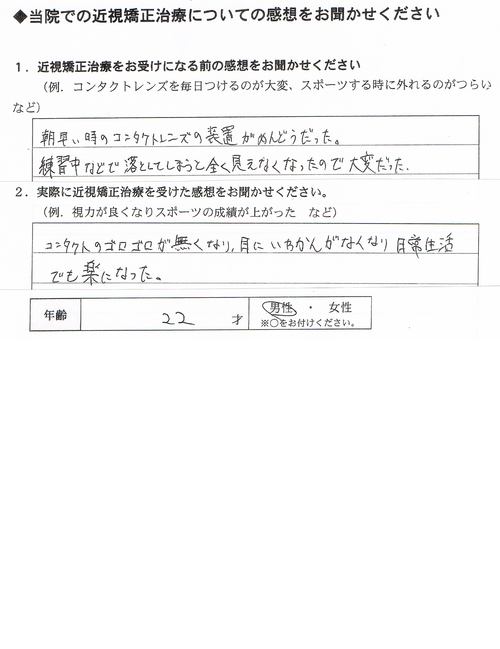 ◆当院での近視矯正治療についての感想をお聞かせください
１．近視矯正治療をお受けになる前の感想をお聞かせください
（例．コンタクトレンズを毎日つけるのが大変、スポーツする時に外れるのがつらい
など）
朝早い時のコンタクトレンズの装置がめんどうだった。
練習中などで落としてしまうと全く見えなくなったので大変だった.
２．実際に近視矯正治療を受けた感想をお聞かせください。
（例．視力が良くなりスポーツの成績が上がった　など）
コンタクトのゴロゴロが無くなり,目にいわかんがなくなり日常生活
でも楽になった。
年齢 22 才 男性 ・ 女性
※○をお付けください。